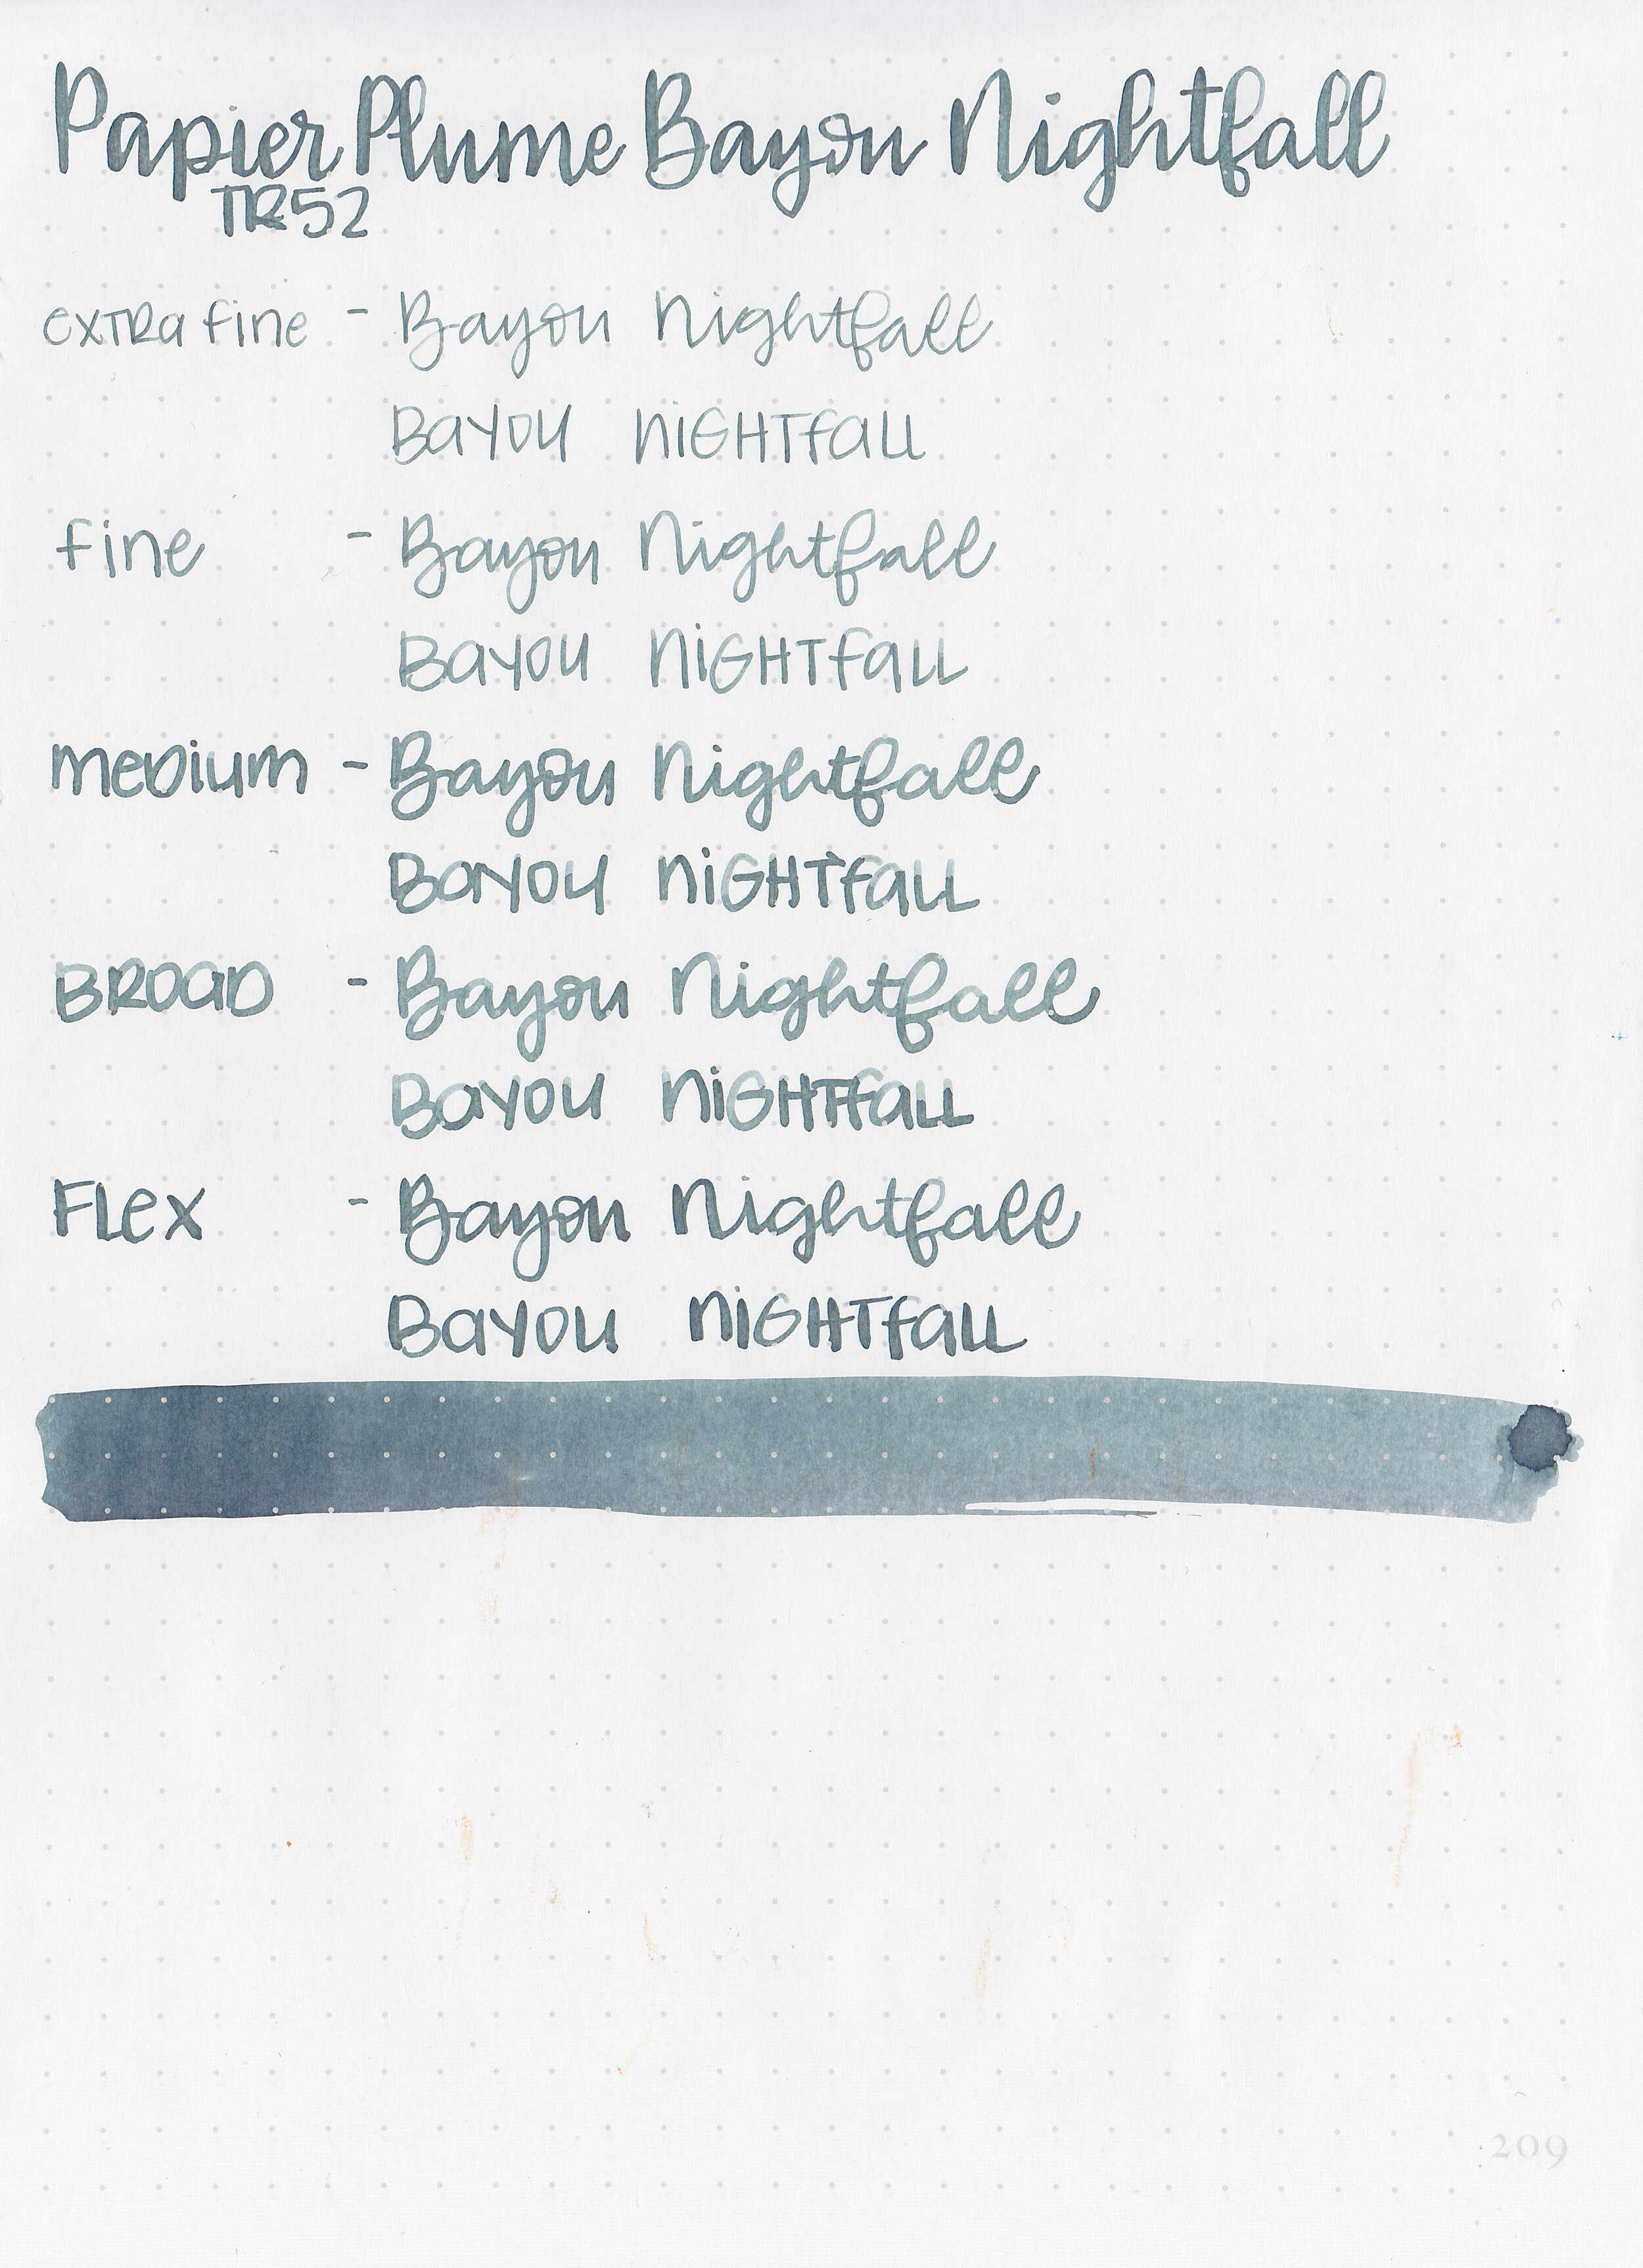 Papier Plume Bayou Nightfall
TR52
extra fine - Bayou Nightfall
Bayou Nightfall
fine - Bayou Nightfall
Bayou Nightfall
medium - Bayou Nightfall
Bayou Nightfall
Broad - Bayou Nightfall
Bayou Nightfall
Flex - Bayou Nightfall
Bayou Nightfall
209